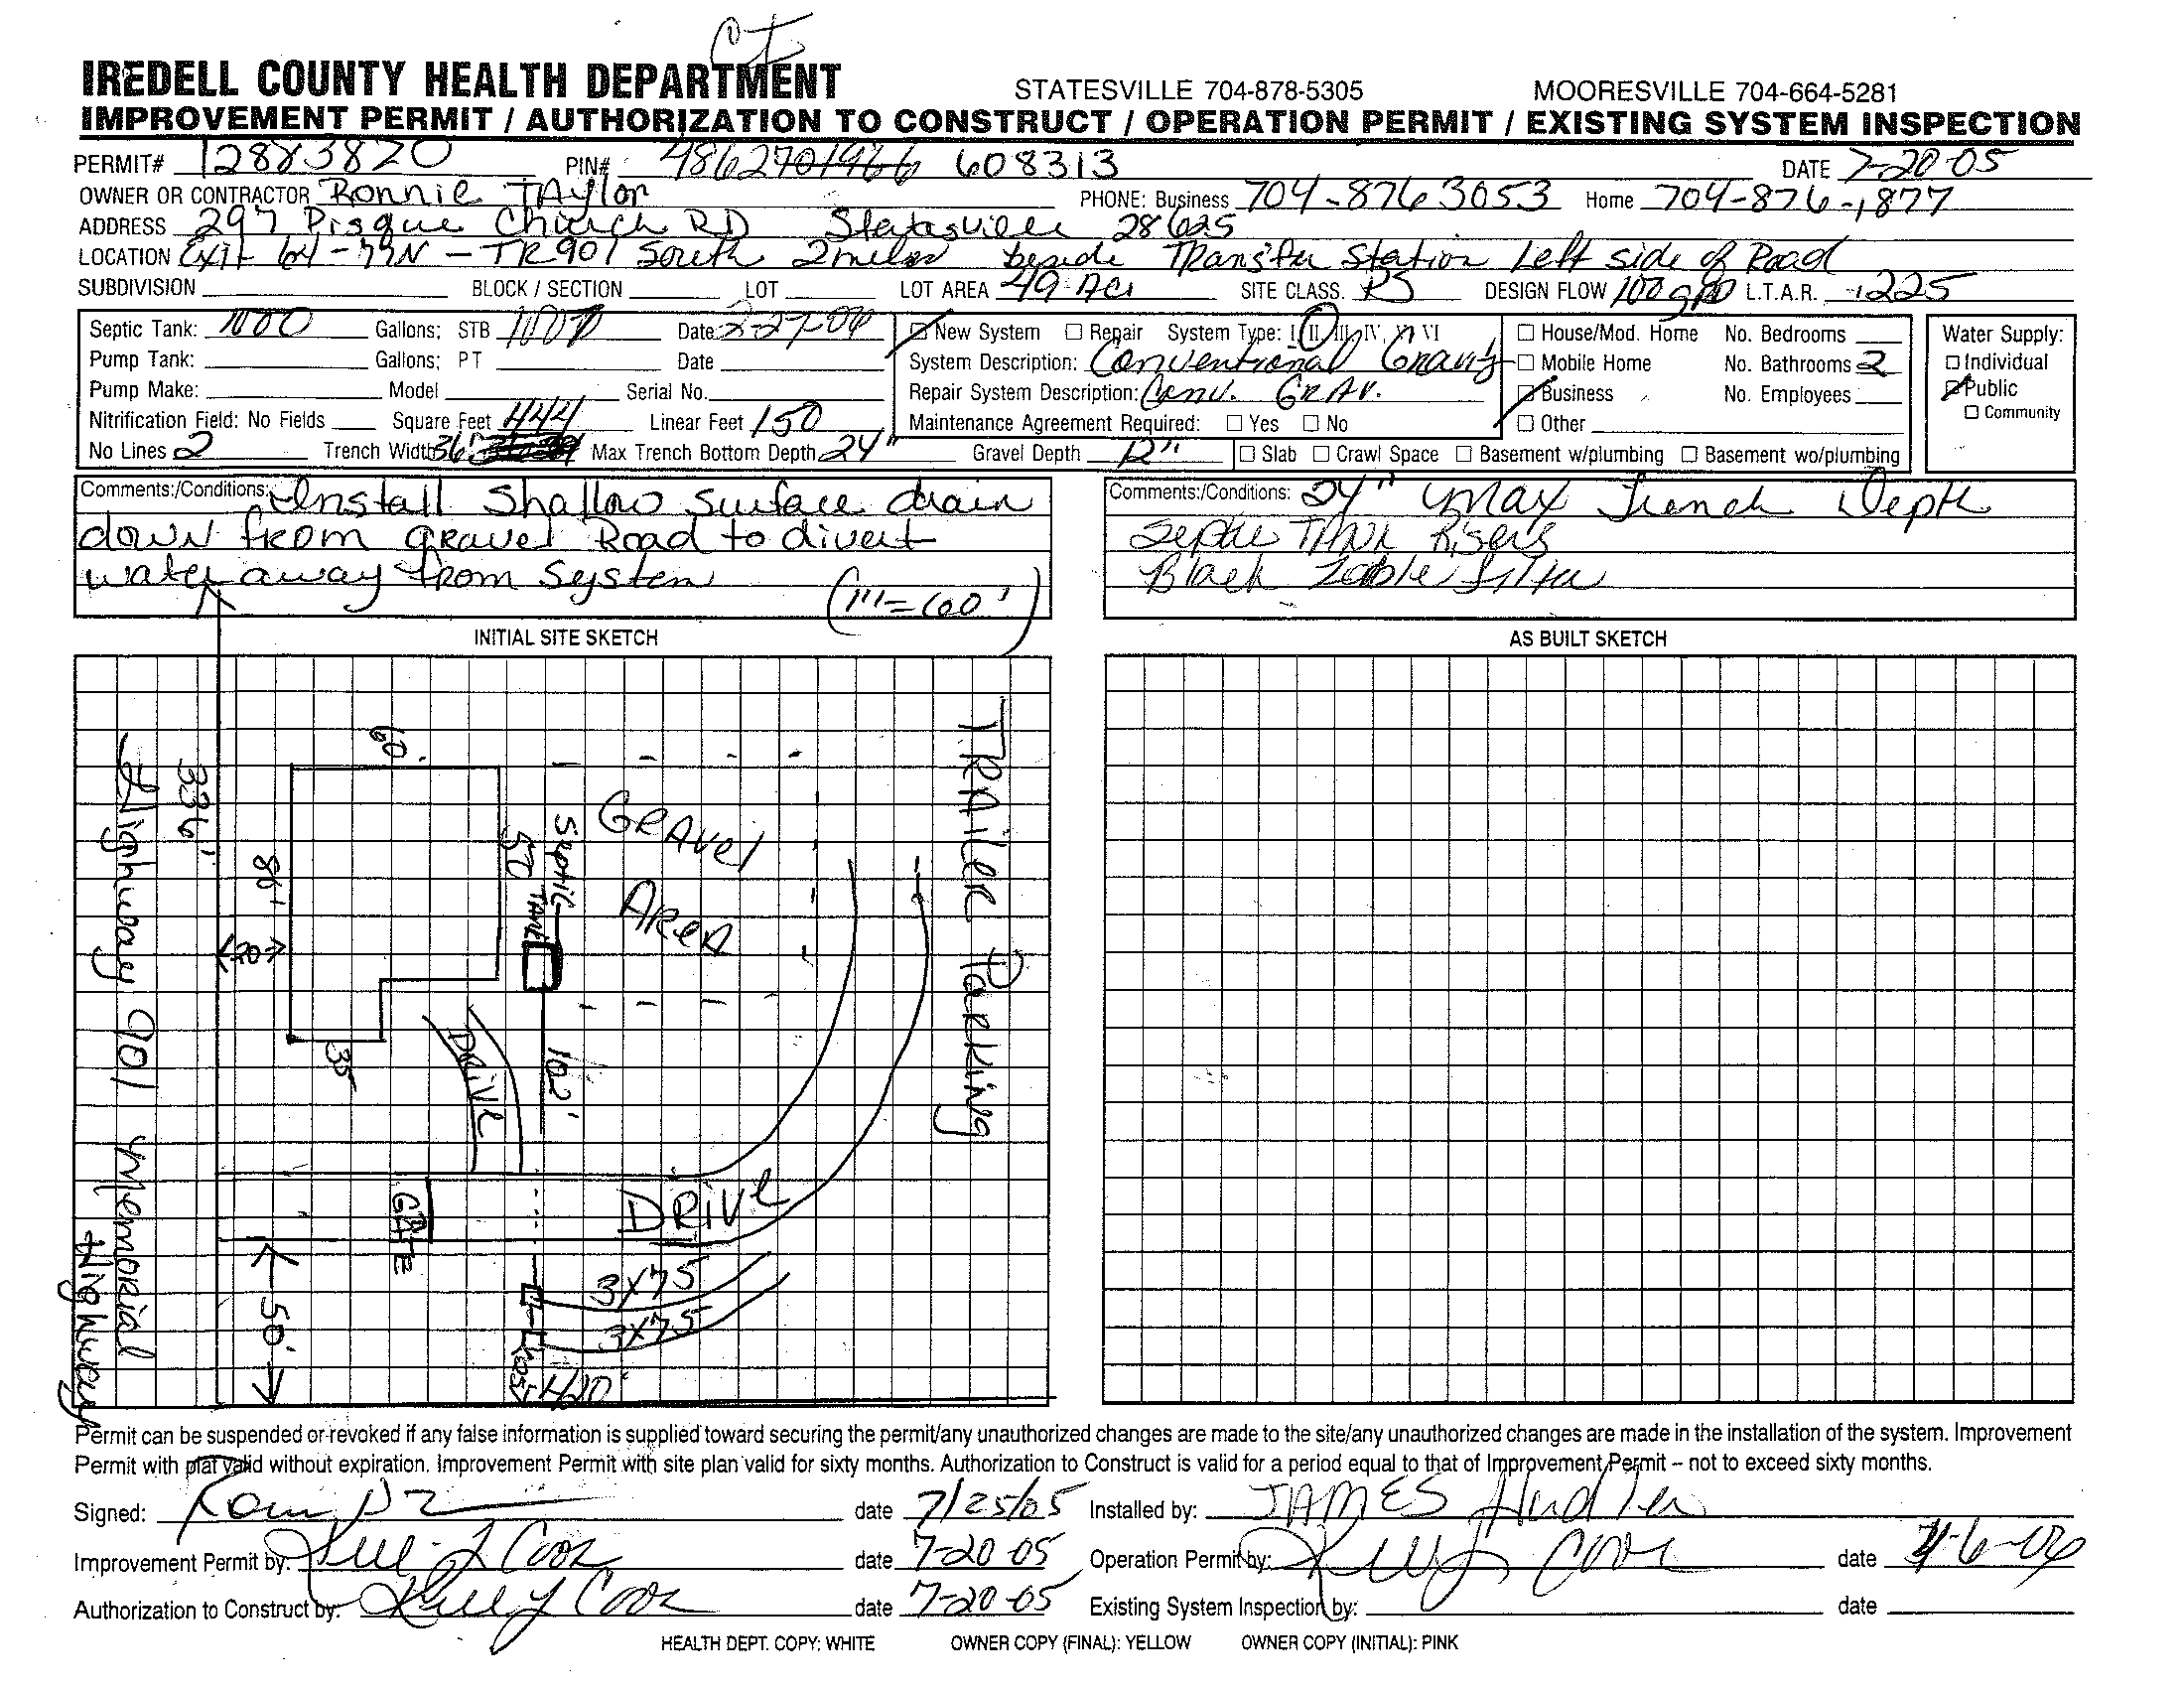 CT
IREDELL COUNTY HEALTH DEPARTMENT STATESVILLE 704-878-5305 MOORESVILLE 704-664-5281
IMPROVEMENT PERMIT / AUTHORIZATION TO CONSTRUCT / OPERATION PERMIT / EXISTING SYSTEM INSPECTION
PERMIT# 12883820 PIN# 4862701966 608313 DATE 7-20-05
OWNER OR CONTRACTOR Ronnie TAylor PHONE: Business 704-876 3053 Home 704-876-1877
ADDRESS 297 Pisgue Church RD Statesville 28625
LOCATION Exit 64-77N - TR 901 South 2 miles beside Transfer Station Left side of Road
SUBDIVISION BLOCK / SECTION LOT LOT AREA 49 Ac SITE CLASS. PS DESIGN FLOW 100 gpd L.T.A.R. .225
Septic Tank: 1000 Gallons: STB Date 2-27-06 New System Repair System Type: I II III IV V VI House/Mod. Home No. Bedrooms Water Supply:
Pump Tank: Gallons: PT Date System Description: Conventional Gravity Mobile Home No. Bathrooms 2 Individual
Pump Make: Model Serial No. Repair System Description: Conv. GRAV. Business No. Employees Public
Nitrification Field: No Fields Square Feet 444 Linear Feet 150 Maintenance Agreement Required: Yes No Other Community
No Lines 2 Trench Width 36" Max Trench Bottom Depth 24" Gravel Depth 12" Slab Crawl Space Basement w/plumbing Basement wo/plumbing
Comments:/Conditions: Install Shallow surface drain
down from gravel Road to divert
water away from System
(1"=60')
Comments:/Conditions: 24" Max Trench Depth
Septic Tank Risers
Black Zable Filter
INITIAL SITE SKETCH AS BUILT SKETCH
60'
336'
86'
20
35
50
Septic Tank
GRAVel
AReA
TRAILER Parking
DRIVE
102'
Highway 901 Memorial
Highway
GATE
DRIVE
50'
3x75
3x75
420'
Permit can be suspended or revoked if any false information is supplied toward securing the permit/any unauthorized changes are made to the site/any unauthorized changes are made in the installation of the system. Improvement
Permit with plat valid without expiration. Improvement Permit with site plan valid for sixty months. Authorization to Construct is valid for a period equal to that of Improvement Permit – not to exceed sixty months.
Signed: date 7/25/05 Installed by: JAMES
Improvement Permit by: Cook date 7-20-05 Operation Permit by: Kelly Cook date 4-6-06
Authorization to Construct by: Kelly Cook date 7-20-05 Existing System Inspection by: date
HEALTH DEPT. COPY: WHITE OWNER COPY (FINAL): YELLOW OWNER COPY (INITIAL): PINK